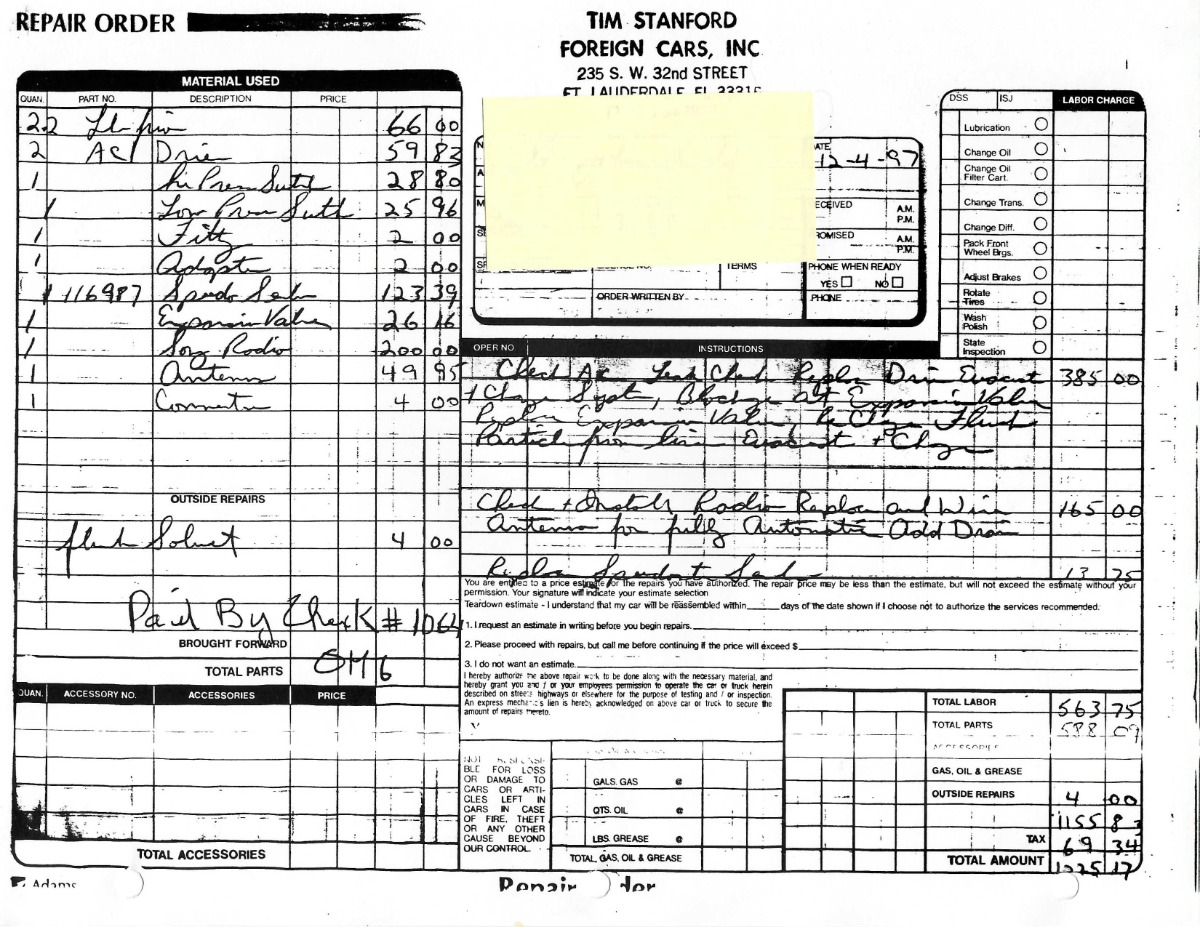 REPAIR ORDER
TIM STANFORD
FOREIGN CARS, INC
235 S. W. 32nd STREET
FT. LAUDERDALE, FL 33315
MATERIAL USED
QUAN. PART NO. DESCRIPTION PRICE
66 00
2 AC Drier 59 83
1 28 80
1 25 96
1 2 00
1 2 00
1 116987 123 39
1 Expansion Valve 26 16
1 Sony Radio 200 00
1 Antenna 49 95
1 4 00
OUTSIDE REPAIRS
flush Solvent 4 00
Paid By Check # 1064
BROUGHT FORWARD
TOTAL PARTS
QUAN. ACCESSORY NO. ACCESSORIES PRICE
TOTAL ACCESSORIES
Adams
DATE
12-4-97
RECEIVED A.M. P.M.
PROMISED A.M. P.M.
TERMS
PHONE WHEN READY
YES NO
ORDER WRITTEN BY
PHONE
DSS ISJ LABOR CHARGE
Lubrication
Change Oil
Change Oil Filter Cart.
Change Trans.
Change Diff.
Pack Front Wheel Brgs.
Adjust Brakes
Rotate Tires
Wash Polish
State Inspection
OPER NO. INSTRUCTIONS
Check AC Leak Check Replace Drier Evacuat 385 00
+ Charge System, Blockage at Expansion Valve
Replace Expansion Valve, ReCharge Flush
from line Evacuat + Charge
Check + Install Radio Replace and Wire 165 00
Antenna for fully Automatic Add
Replace 13 75
You are entitled to a price estimate for the repairs you have authorized. The repair price may be less than the estimate, but will not exceed the estimate without your
permission. Your signature will indicate your estimate selection
Teardown estimate - I understand that my car will be reassembled within days of the date shown if I choose not to authorize the services recommended.
1. I request an estimate in writing before you begin repairs.
2. Please proceed with repairs, but call me before continuing if the price will exceed $
3. I do not want an estimate.
I hereby authorize the above repair work to be done along with the necessary material, and
hereby grant you and / or your employees permission to operate the car or truck herein
described on streets highways or elsewhere for the purpose of testing and / or inspection.
An express mechanic's lien is hereby acknowledged on above car or truck to secure the
amount of repairs thereto.
NOT RESPONSI-
BLE FOR LOSS
OR DAMAGE TO
CARS OR ARTI-
CLES LEFT IN
CARS IN CASE
OF FIRE, THEFT
OR ANY OTHER
CAUSE BEYOND
OUR CONTROL.
GALS. GAS @
QTS. OIL @
LBS. GREASE @
TOTAL, GAS, OIL & GREASE
TOTAL LABOR 563 75
TOTAL PARTS 588 09
ACCESSORIES
GAS, OIL & GREASE
OUTSIDE REPAIRS 4 00
1155 83
TAX 69 34
TOTAL AMOUNT 1225 17
Repair Order